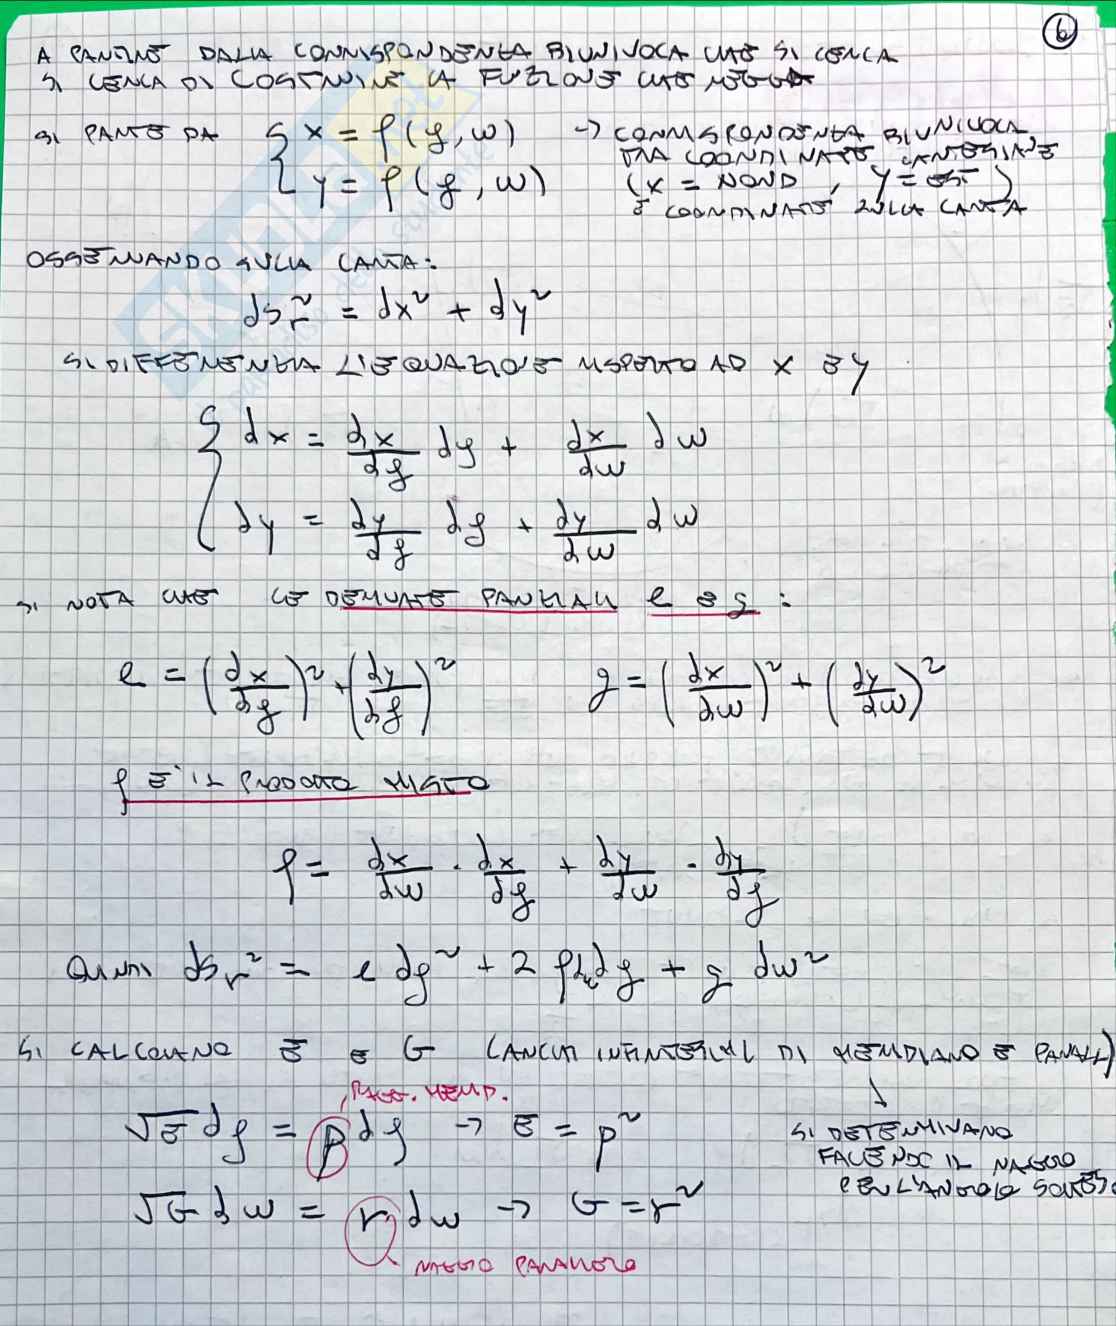 6
A PARTIRE DALLA CORRISPONDENZA BIUNIVOCA CHE SI CERCA
SI CERCA DI COSTRUIRE LA FUNZIONE CHE REGOLA
SI PARTE DA { x = f(φ, ω) → CORRISPONDENZA BIUNIVOCA
TRA COORDINATE CARTESIANE
y = f(φ, ω) (x = NORD, y = EST)
E COORDINATE SULLA CARTA
OSSERVANDO SULLA CARTA:
ds_r² = dx² + dy²
SI DIFFERENZIA L'EQUAZIONE RISPETTO AD x E y
{ dx = dx/dφ dφ + dx/dω dω
dy = dy/dφ dφ + dy/dω dω
SI NOTA CHE LE DERIVATE PARZIALI e e g :
e = (dx/dφ)² + (dy/dφ)² g = (dx/dω)² + (dy/dω)²
f E' IL PRODOTTO MISTO
f = dx/dω · dx/dφ + dy/dω · dy/dφ
QUINDI ds_r² = e dφ² + 2 f dω dφ + g dω²
SI CALCOLANO E e G (ARCHI INFINITESIMI DI MERIDIANO E PARALL)
RAGG. MERID.
√E dφ = ρ dφ → E = ρ²
SI DETERMINANO
FACENDO IL RAGGIO
PER L'ANGOLO SOTTESO
√G dω = r dω → G = r²
RAGGIO PARALLELO
SKUOLA.net